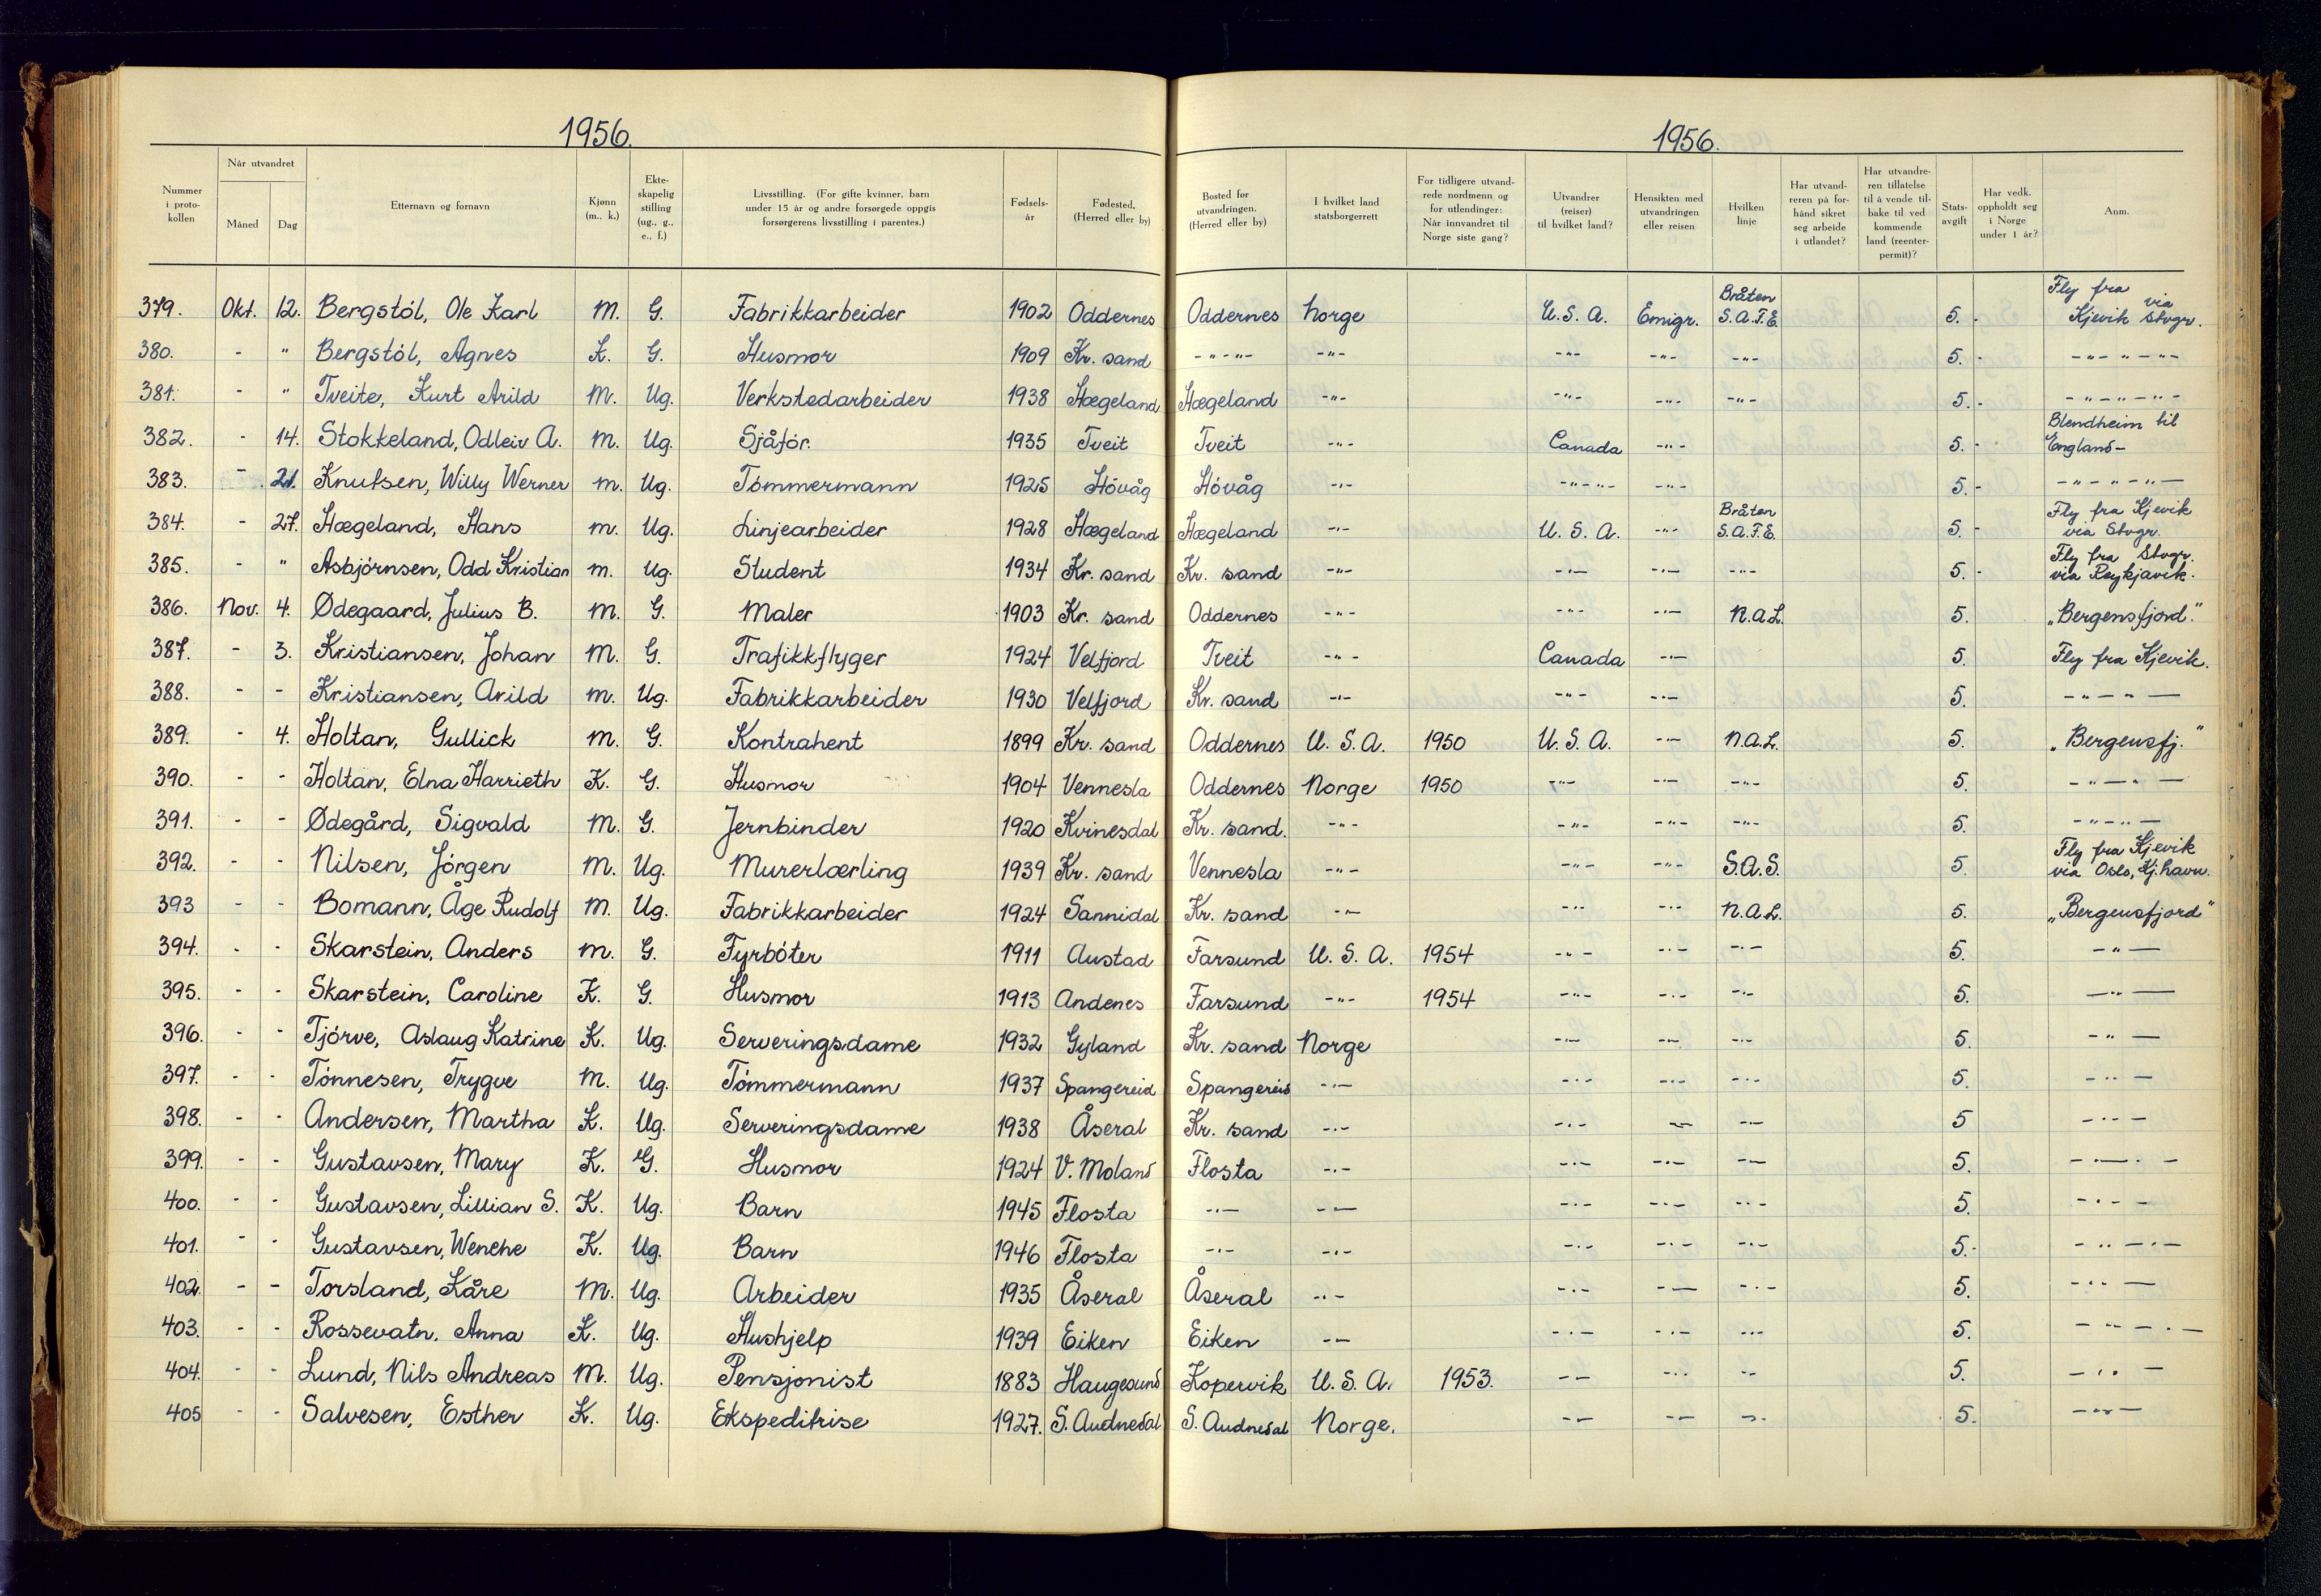 1956.
1956.
Nummer i proto-kollen | Når utvandret | Måned | Dag | Etternavn og fornavn | Kjønn (m., k.) | Ekte-skapelig stilling (ug., g., e., f.) | Livsstilling. (For gifte kvinner, barn under 15 år og andre forsørgede oppgis forsørgerens livsstilling i parentes.) | Fødsels-år | Fødested. (Herred eller by) | Bosted før utvandringen. (Herred eller by) | I hvilket land statsborgerrett | For tidligere utvand-rede nordmenn og for utlendinger: Når innvandret til Norge siste gang? | Utvandrer (reiser) til hvilket land? | Hensikten med utvandringen eller reisen | Hvilken linje | Har utvand-reren på for-hånd sikret seg arbeide i utlandet? | Har utvandre-ren tillatelse til å vende til-bake til ved kommende land (reenter-permit)? | Stats-avgift | Har vedk. oppholdt seg i Norge under 1 år? | Anm.
379. Okt. 12. Bergstöl, Ole Karl M. G. Fabrikkarbeider 1902 Oddernes Oddernes Norge U.S.A. Emigr. Bråten S.A.F.E. 5.- Fly fra Kjevik via Stvgr.
380. - " Bergstöl, Agnes K. G. Husmor 1909 Kr. sand -"-"- -"- -"- -"- -"- 5.- -"-"-"-
381. - " Tveite, Kurt Arild M. Ug. Verkstedarbeider 1938 Hægeland Hægeland -"- -"- -"- -"- 5.- -"-"-"-
382. - 14. Stokkeland, Odleiv A. M. Ug. Sjåför. 1935 Tveit Tveit -"- Canada -"- 5.- Blendheim til England-
383. - 21. Knutsen, Willy Werner M. Ug. Tömmermann 1925 Hövåg Hövåg -"- -"-"- -"- 5.- -"-"-"-
384. - 27. Hægeland, Hans M. Ug. Linjearbeider 1928 Hægeland Hægeland -"- U.S.A. -"- Bråten S.A.F.E. 5.- Fly fra Kjevik via Stvgr.
385. - " Asbjörnsen, Odd Kristian M. Ug. Student 1934 Kr. sand Kr. sand -"- -"- -"- -"- 5.- Fly fra Stvgr. via Reykjavik.
386. Nov. 4. Ødegaard, Julius B. M. G. Maler 1903 Kr. sand Oddernes -"- -"- -"- N.A.L. 5. „Bergensfjord".
387. - 3. Kristiansen, Johan M. G. Trafikkflyger 1924 Velfjord Tveit -"- Canada -"- 5. Fly fra Kjevik.
388. - - Kristiansen, Arild M. Ug. Fabrikkarbeider 1930 Velfjord Kr. sand -"- -"- -"- 5. -"-"-
389. - 4. Holtan, Gullick M. G. Kontrahent 1899 Kr. sand Oddernes U.S.A. 1950 U.S.A. -"- N.A.L. 5. „Bergensfj."
390. - - Holtan, Elna Harrieth K. G. Husmor 1904 Vennesla Oddernes Norge 1950 -"- -"- -"- 5. -"-"-
391. - - Ødegård, Sigvald M. G. Jernbinder 1920 Kvinesdal Kr. sand. -"- -"- -"- -"- 5. -"-"-
392. - - Nilsen, Jörgen M. Ug. Murerlærling 1939 Kr. sand Vennesla -"- -"- -"- S.A.S. 5. Fly fra Kjevik via Oslo, Kj.havn.
393 - - Bomann, Åge Rudolf M. Ug. Fabrikkarbeider 1924 Sannidal Kr. sand -"- -"- -"- N.A.L. 5. „Bergensfjord"
394. - - Skarstein, Anders M. G. Fyrböter 1911 Austad Farsund U.S.A. 1954 -"- -"- -"- 5. -"-
395. - - Skarstein, Caroline K. G. Husmor 1913 Andenes Farsund -"- 1954 -"- -"- -"- 5. -"-
396. - - Tjörve, Aslaug Katrine K. Ug. Serveringsdame 1932 Gyland Kr. sand Norge -"- -"- -"- 5. -"-
397. - - Tönnesen, Trygve M. Ug. Tömmermann 1937 Spangereid Spangereid -"- -"- -"- -"- 5. -"-
398. - - Andersen, Martha K. Ug. Serveringsdame 1938 Åseral Kr. sand -"- -"- -"- -"- 5 -"-
399. - - Gustavsen, Mary K. G. Husmor 1924 V. Moland Flosta -"- -"- -"- -"- 5. -"-"-
400. - - Gustavsen, Lillian S. K. Ug. Barn 1945 Flosta -"- -"- -"- -"- -"- 5. -"-
401. - - Gustavsen, Wenche K. Ug. Barn 1946 Flosta -"- -"- -"- -"- -"- 5.- -"-"-
402. - - Torsland, Kåre M. Ug. Arbeider 1935 Åseral Åseral -"- -"- -"- -"- 5. -"-
403. - - Rossevatn. Anna K. Ug. Hushjelp 1939 Eiken Eiken -"- -"- -"- -"- 5. -"-"-
404. - - Lund, Nils Andreas M. Ug. Pensjonist 1883 Haugesund Kopervik U.S.A. 1953. -"- -"- -"- 5. -"-
405 - - Salvesen, Esther K. Ug. Ekspeditrise 1927. S. Audnedal S. Audnedal Norge. -"- -"- -"- 5. -"-